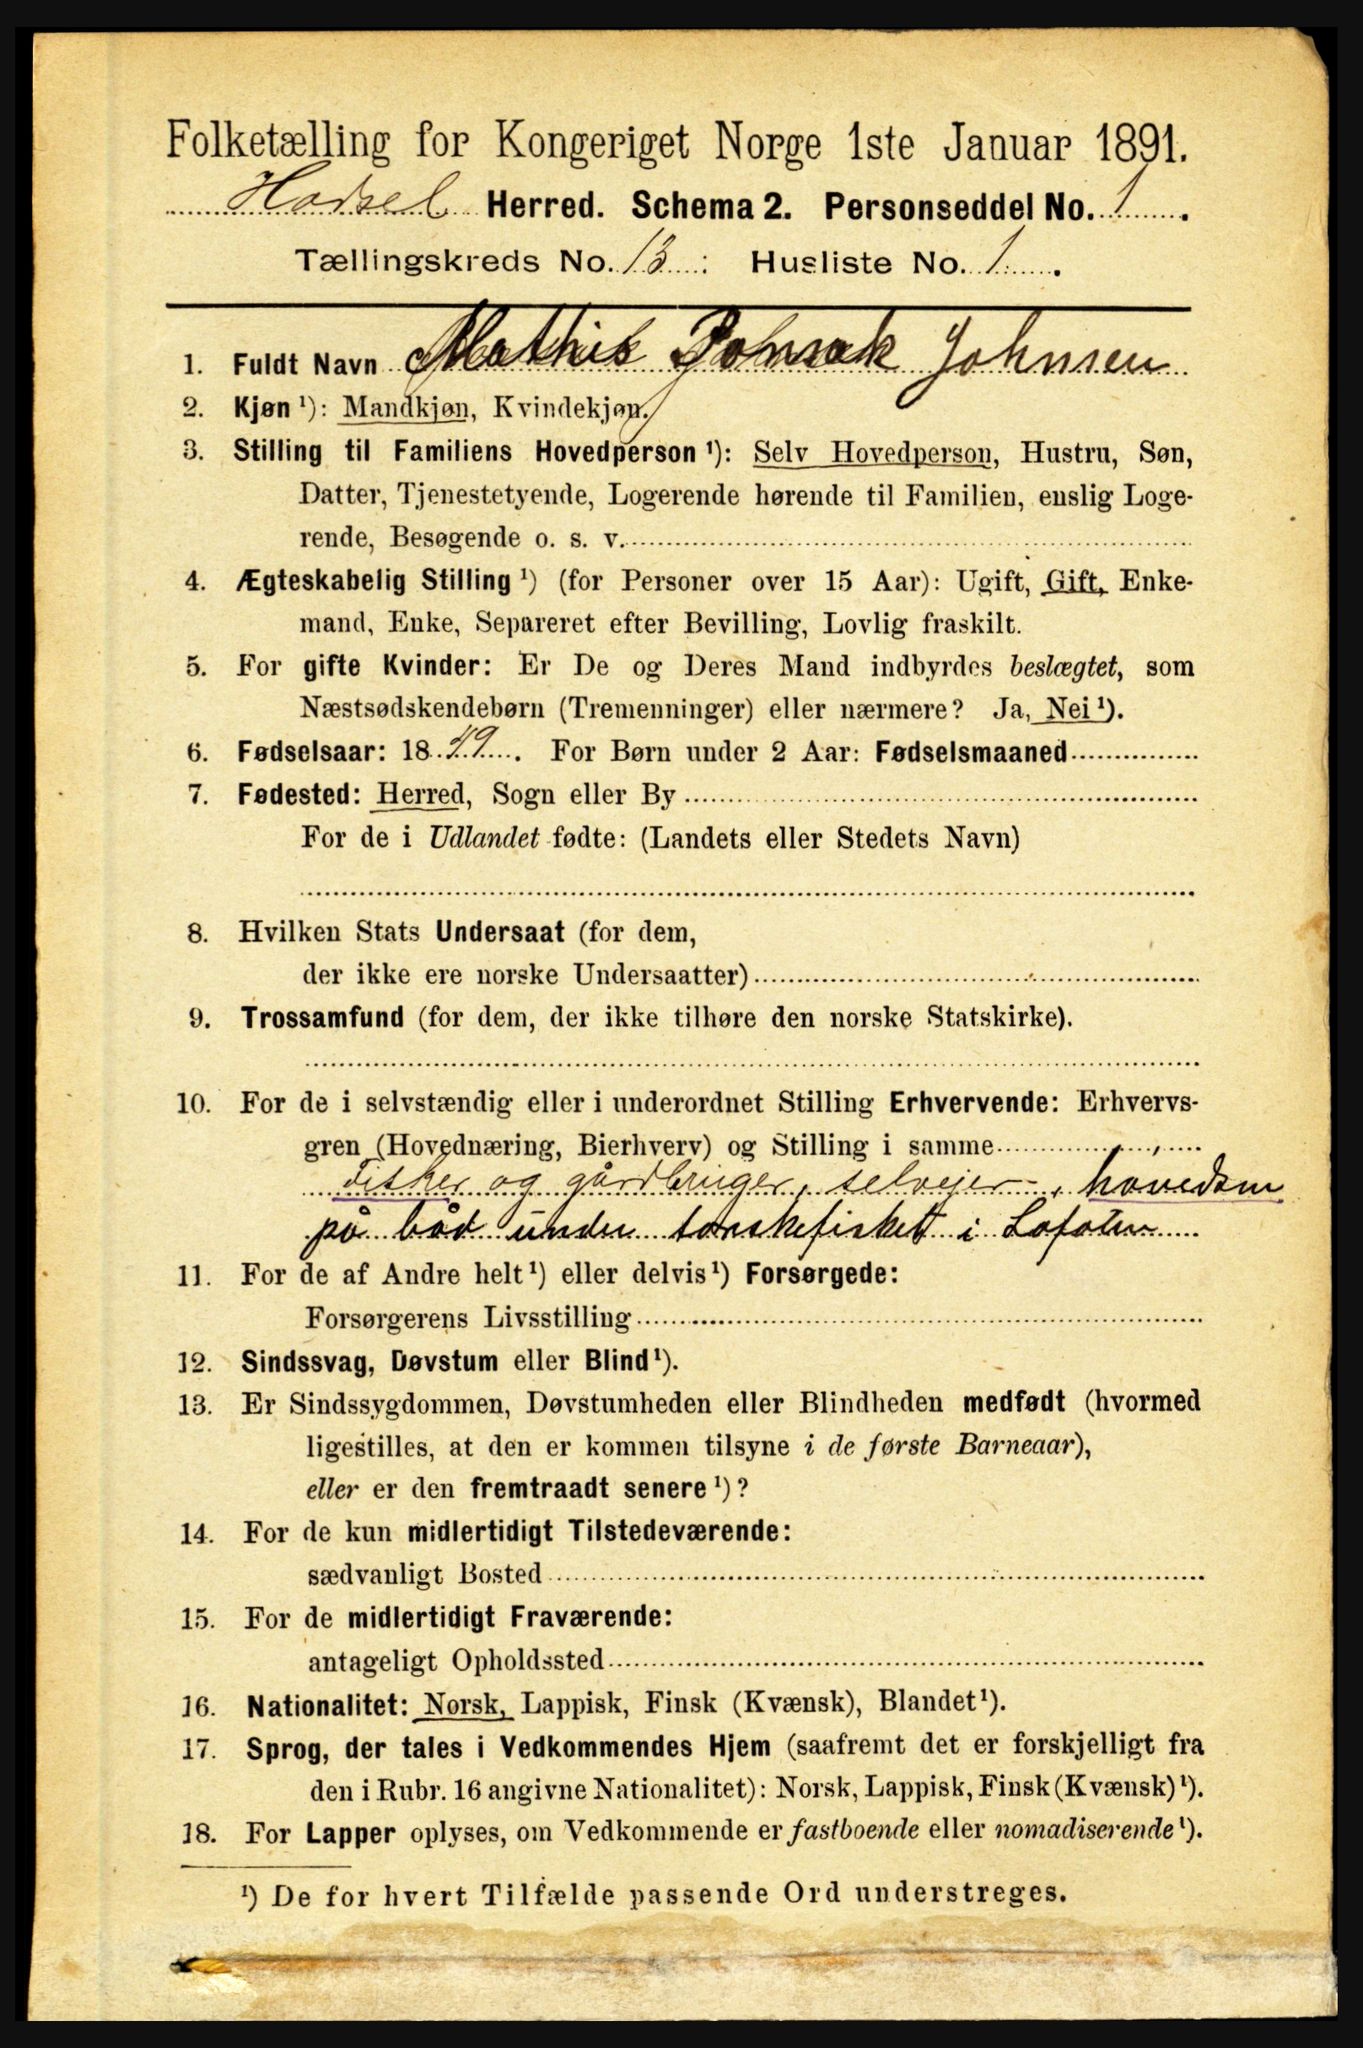 Folketælling for Kongeriget Norge 1ste Januar 1891.
Hadsel Herred. Schema 2. Personseddel No. 1.
Tællingskreds No. 13: Husliste No. 1.
1. Fuldt Navn Mathis Johnsen
2. Kjøn ¹): Mandkjøn, Kvindekjøn.
3. Stilling til Familiens Hovedperson ¹): Selv Hovedperson, Hustru, Søn,
Datter, Tjenestetyende, Logerende hørende til Familien, enslig Loge-
rende, Besøgende o. s. v.
4. Ægteskabelig Stilling ¹) (for Personer over 15 Aar): Ugift, Gift, Enke-
mand, Enke, Separeret efter Bevilling, Lovlig fraskilt.
5. For gifte Kvinder: Er De og Deres Mand indbyrdes beslægtet, som
Næstsødskendebørn (Tremenninger) eller nærmere? Ja, Nei ¹).
6. Fødselsaar: 1849. For Børn under 2 Aar: Fødselsmaaned
7. Fødested: Herred, Sogn eller By
For de i Udlandet fødte: (Landets eller Stedets Navn)
8. Hvilken Stats Undersaat (for dem,
der ikke ere norske Undersaatter)
9. Trossamfund (for dem, der ikke tilhøre den norske Statskirke).
10. For de i selvstændig eller i underordnet Stilling Erhvervende: Erhvervs-
gren (Hovednæring, Bierhverv) og Stilling i samme
Fisker og gårdbruger, selvejer, hovedsm
på båd under torskefisket i Lofoten
11. For de af Andre helt ¹) eller delvis ¹) Forsørgede:
Forsørgerens Livsstilling
12. Sindssvag, Døvstum eller Blind ¹).
13. Er Sindssygdommen, Døvstumheden eller Blindheden medfødt (hvormed
ligestilles, at den er kommen tilsyne i de første Barneaar),
eller er den fremtraadt senere ¹)?
14. For de kun midlertidigt Tilstedeværende:
sædvanligt Bosted
15. For de midlertidigt Fraværende:
antageligt Opholdssted
16. Nationalitet: Norsk, Lappisk, Finsk (Kvænsk), Blandet ¹).
17. Sprog, der tales i Vedkommendes Hjem (saafremt det er forskjelligt fra
den i Rubr. 16 angivne Nationalitet): Norsk, Lappisk, Finsk (Kvænsk) ¹).
18. For Lapper oplyses, om Vedkommende er fastboende eller nomadiserende ¹).
¹) De for hvert Tilfælde passende Ord understreges.